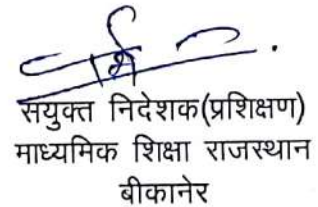 सयुक्त निदेशक(प्रशिक्षण)
माध्यमिक शिक्षा राजस्थान
बीकानेर